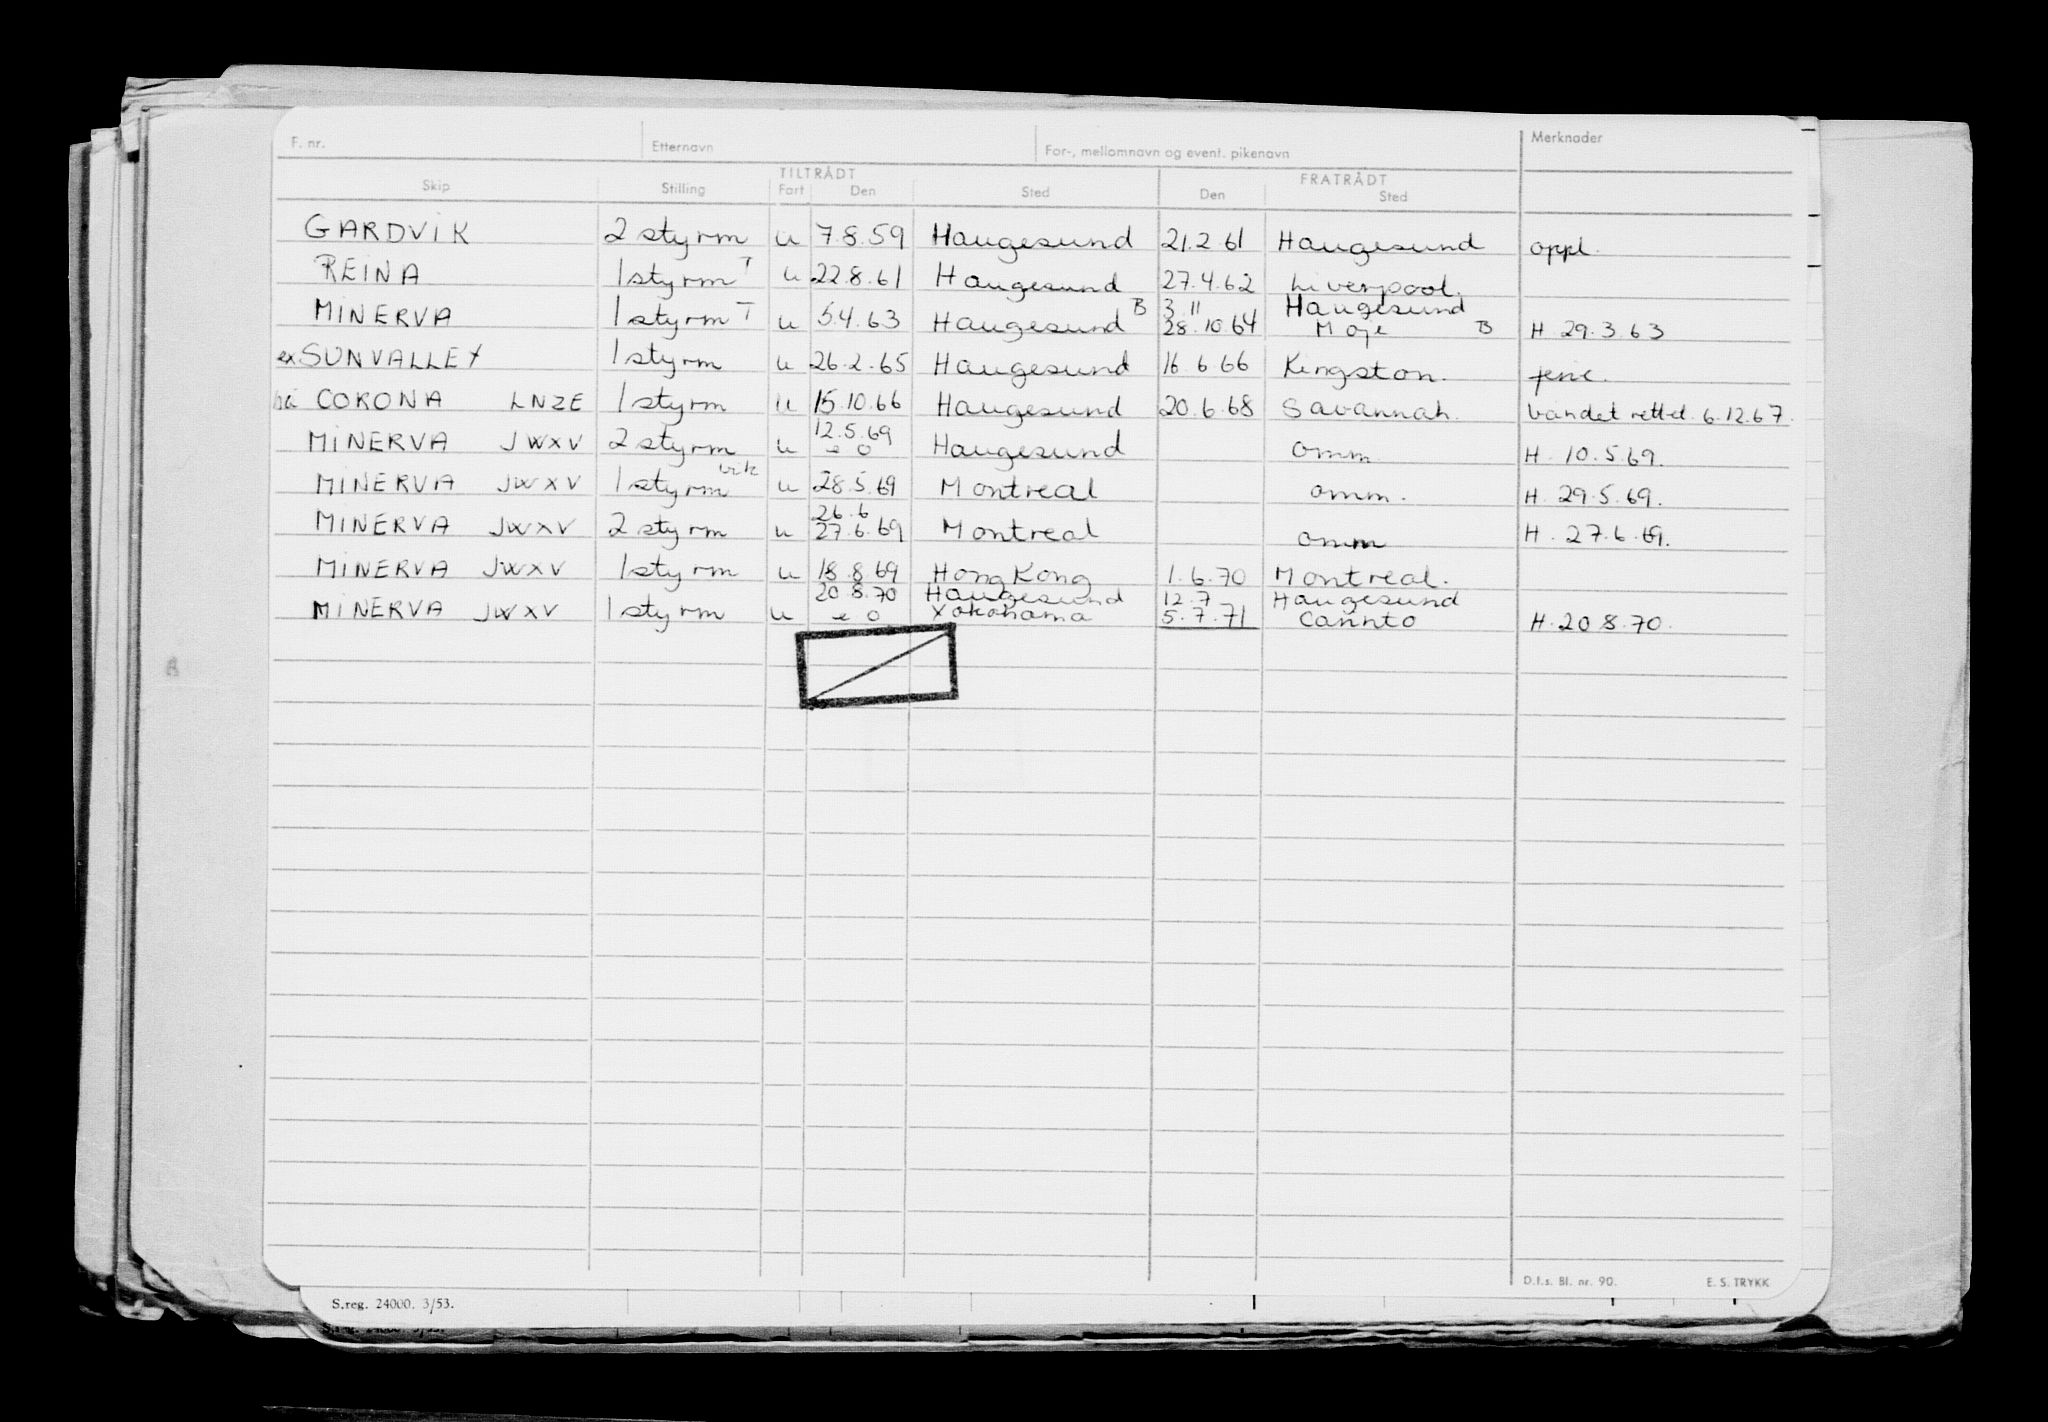 F. nr. Etternavn For-, mellomnavn og event. pikenavn Merknader
TILTRÅDT FRATRÅDT
Skip Stilling Fart Den Sted Den Sted
GARDVIK 2 styrm u 7.8.59 Haugesund 21.2 61 Haugesund oppl.
REINA 1 styrm T u 22 8.61 Haugesund 27.4.62 Liverpool.
B 3 11 Haugesund
MINERVA 1 styrm T u 5.4.63 Haugesund 28.10.64 Moje B H 29.3.63
ex SUNVALLEY 1 styrm u 26.2.65 Haugesund 16 6 66 Kingston. ferie.
nå CORONA LNZE 1 styrm u 15.10.66 Haugesund 20.6.68 Savannah. bandet rettet 6.12.67.
12.5.69
MINERVA JWXV 2 styrm u e o Haugesund omm H. 10.5.69.
MINERVA JWXV 1 styrm vik u 28.5.69 Montreal omm. H. 29.5.69.
26.6
MINERVA JWXV 2 styrm u 27.6.69 Montreal omm H. 27.6.69.
MINERVA JWXV 1 styrm u 18 8 69 Hong Kong 1.6.70 Montreal.
20 8.70 Haugesund 12.7 Haugesund
MINERVA JWXV 1 styrm u e o Yokohama 5.7.71 Cannto H. 20 8.70.
D.f.s. Bl. nr. 90. E. S. TRYKK
S.reg. 24000. 3/53.